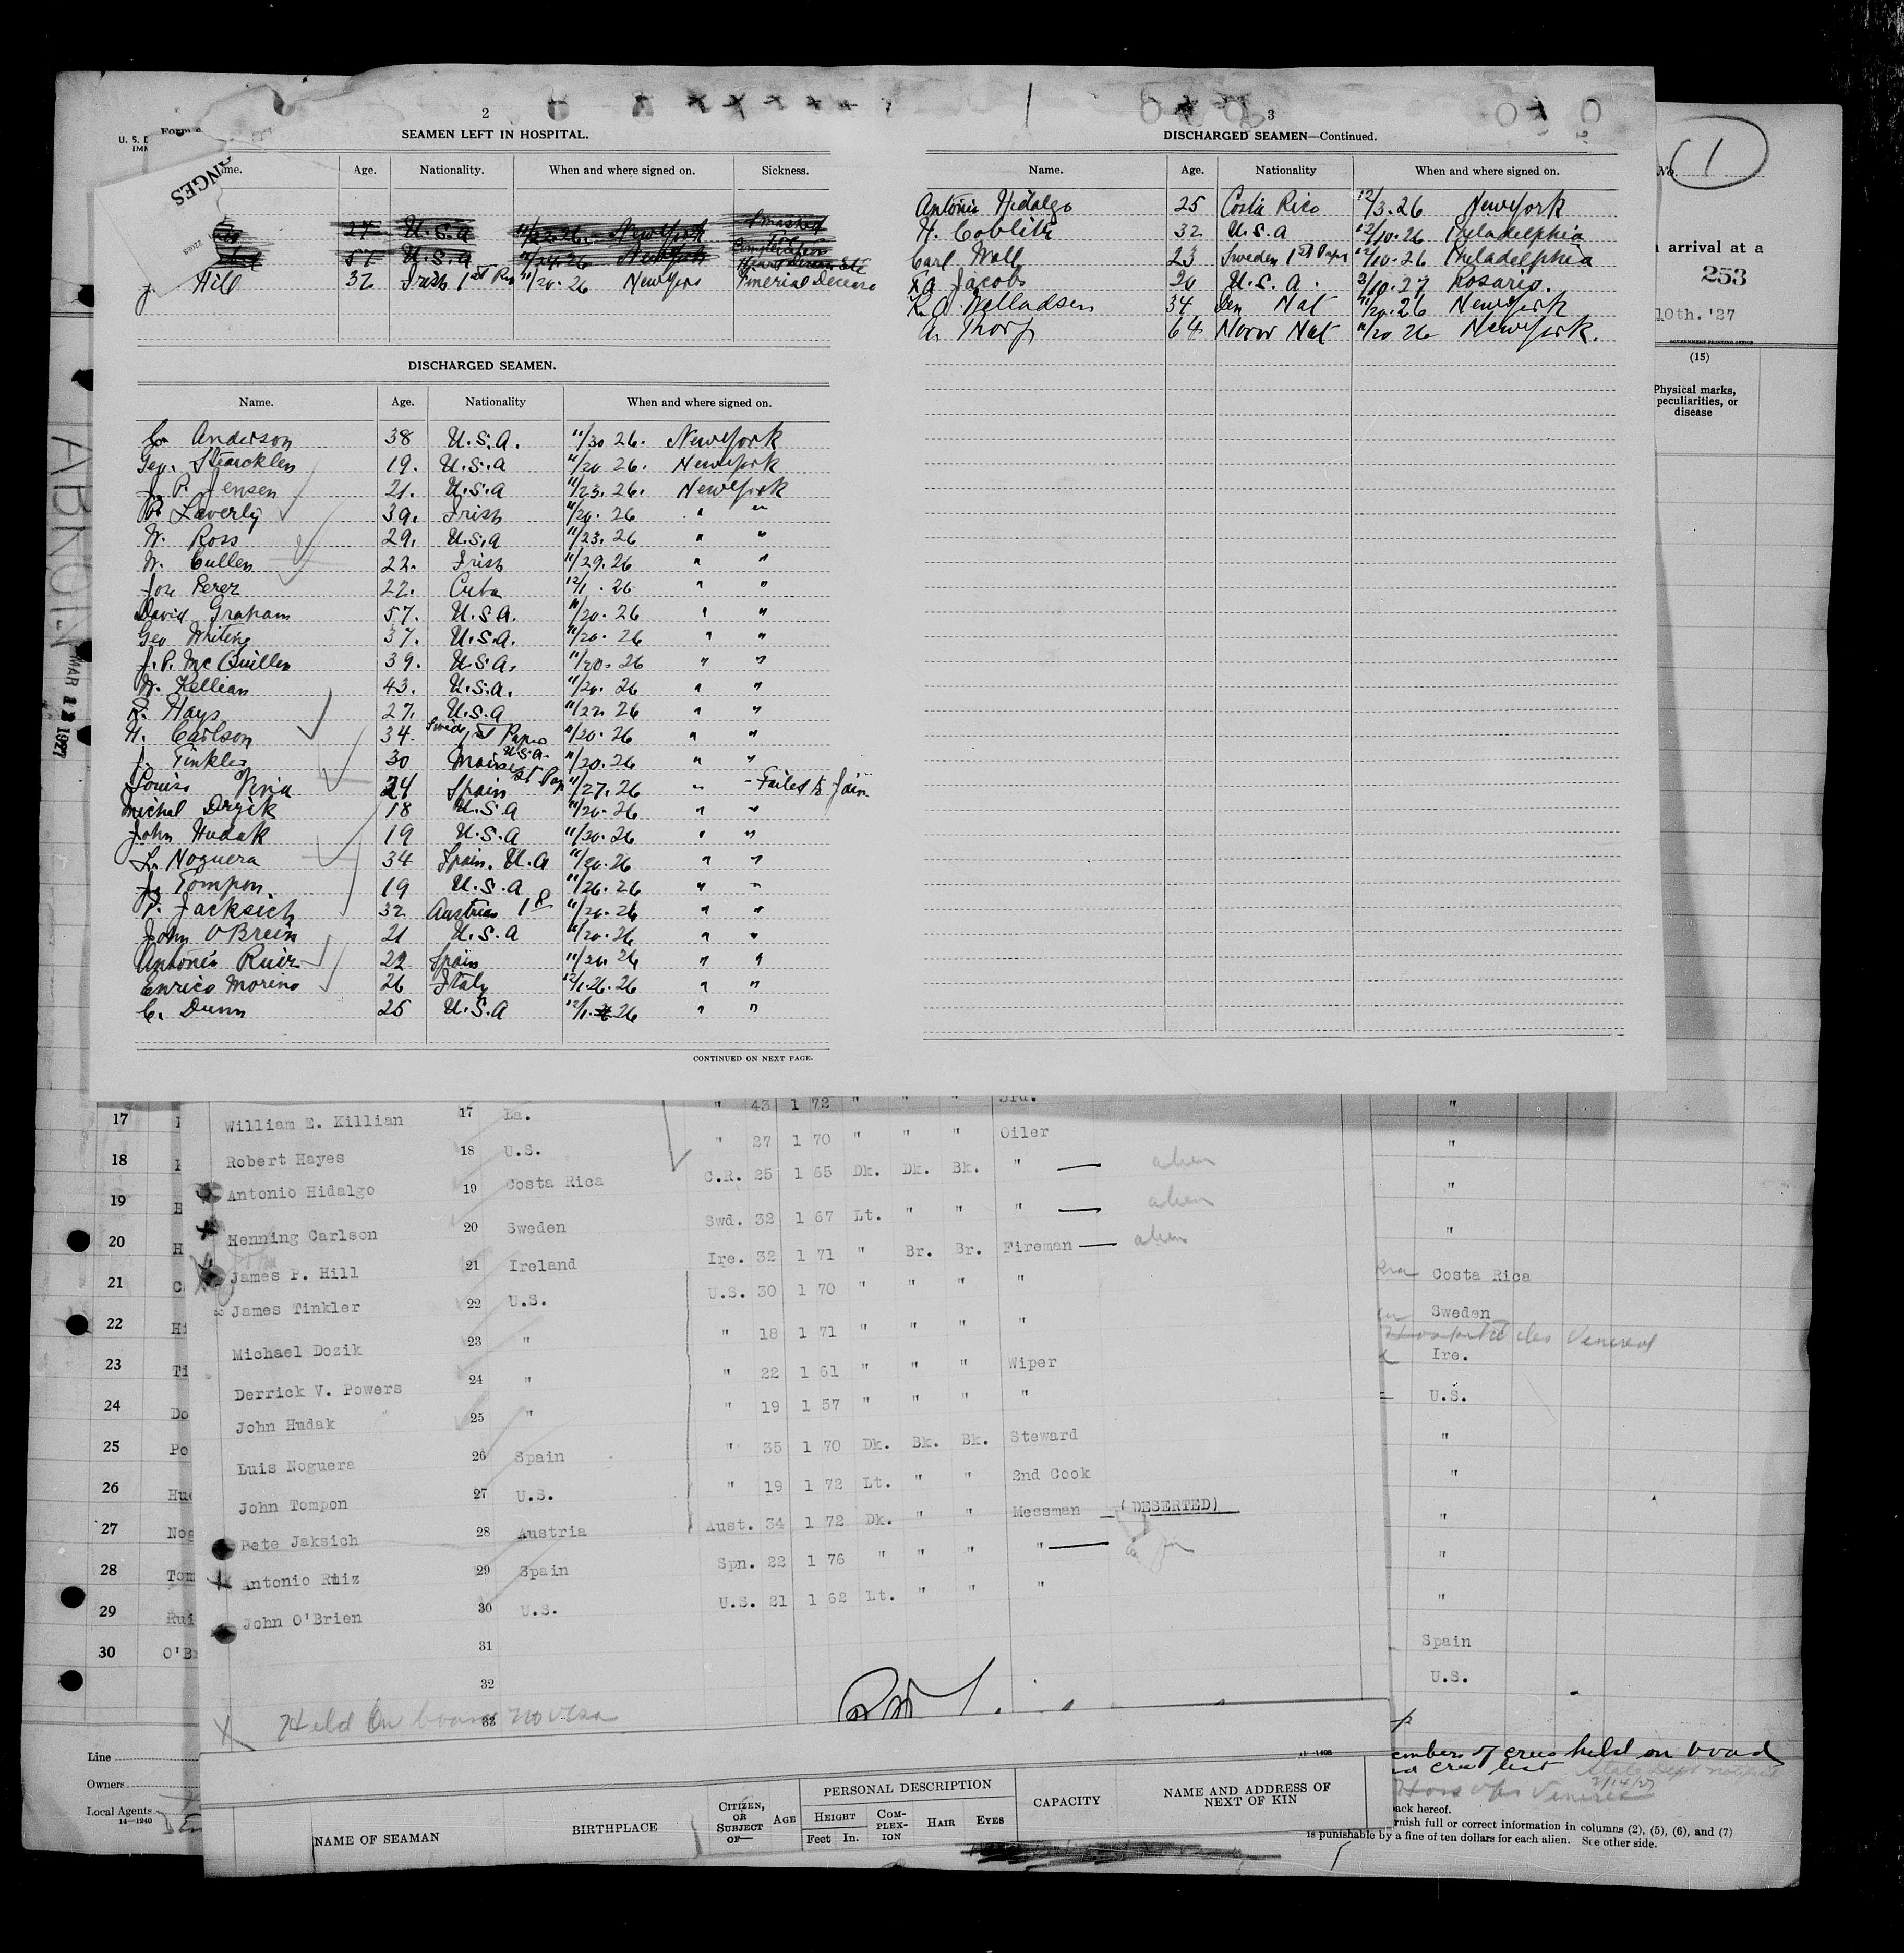 2
SEAMEN LEFT IN HOSPITAL.
Age. Nationality. When and where signed on. Sickness.
27 U.S.A
57 U.S.A
J. Hill 32 Irish 1st 11/20.26 New York
DISCHARGED SEAMEN.
Name. Age. Nationality When and where signed on.
Anderson 38 U.S.A. 11/30 26. New York
Geo. Stearcklen 19. U.S.A 11/20 26. New York
J. P. Jensen 21. U.S.A 11/23. 26. New York
P. Laverly 39. Irish 11/20. 26 " "
W. Ross 29. U.S.A 11/23. 26 " "
W. Cullen 22. Irish 11/29. 26 " "
Jose Perez 22. Cuba 12/1. 26 " "
David Graham 57. U.S.A. 11/20. 26 " "
Geo Whiting 37. U.S.A. 11/20. 26 " "
J. P. McQuillen 39. U.S.A. 11/20. 26 " "
W. Kellian 43. U.S.A. 11/20. 26 " "
R. Hays 27. U.S.A 11/22. 26 " "
H. Carlson 34. Swed 1st Papers 11/20. 26 " "
J. Tinkler 30 U.S.A. 11/20. 26 " "
Louis 24 Spain 11/27. 26 " - Failed to Join
Michal Dryik 18 U.S.A 11/20. 26 " "
John Hudak 19 U.S.A 11/20. 26 " "
L. Noguera 34 Spain. U.A 11/20. 26 " "
J. Tompon. 19 U.S.A 11/26. 26 " "
P. Jacksich 32 Austria 1 P 11/20. 26 " "
John O'Brein 21 U.S.A 11/20. 26 " "
Antonio Ruiz 22 Spain 11/20. 26 " "
Enrico Moreno 26 Italy 12/1.26.26 " "
C. Dunn 25 U.S.A 12/1. 26 " "
CONTINUED ON NEXT PAGE.
3
DISCHARGED SEAMEN—Continued.
Name. Age. Nationality When and where signed on.
Antonio Hidalgo 25 Costa Rico 12/3.26 New York
H. Coblitz 32 U.S.A 12/10.26 Philadelphia
Carl Moll 23 Sweden 1st Paprs 12/10.26 Philadelphia
Jacobs 20 U.S.A. 2/10.27 Rosario.
K. A. Welladsen 34 Den Nat 11/20.26 New York
A. Thorp 64 Norw Nat 11/20 26 New York.
ANGES
No. 1
arrival at a
253
10th. '27
GOVERNMENT PRINTING OFFICE
(15)
Physical marks, peculiarities, or disease
MAR 1927
17 William E. Killian 17 La. " 43 1 72 " " " 3rd.
18 Robert Hayes 18 U.S. " 27 1 70 " " " Oiler
19 Antonio Hidalgo 19 Costa Rica C.R. 25 1 65 Dk. Dk. Bk. " — alien
20 Henning Carlson 20 Sweden Swd. 32 1 67 Lt. " " " — alien
21 James P. Hill 21 Ireland Ire. 32 1 71 " Br. Br. Fireman — alien
22 James Tinkler 22 U.S. U.S. 30 1 70 " " " "
23 Michael Dozik 23 " " 18 1 71 " " " "
24 Derrick V. Powers 24 " " 22 1 61 " " " Wiper
25 John Hudak 25 " " 19 1 57 " " " "
26 Luis Noguera 26 Spain " 35 1 70 Dk. Bk. Bk. Steward
27 John Tompon 27 U.S. " 19 1 72 Lt. " " 2nd Cook
28 Pete Jaksich 28 Austria Aust. 34 1 72 Dk. " " Messman (DESERTED)
29 Antonio Ruiz 29 Spain Spn. 22 1 76 " " " "
30 John O'Brien 30 U.S. U.S. 21 1 62 Lt. " " "
31
32
33
X Held on board no visa
Costa Rica
Sweden
Ire.
U.S.
Spain
U.S.
Line
Owners
Local Agents
14—1240
NAME OF SEAMAN BIRTHPLACE CITIZEN, OR SUBJECT OF— AGE PERSONAL DESCRIPTION HEIGHT Feet In. COM-PLEX-ION HAIR EYES CAPACITY NAME AND ADDRESS OF NEXT OF KIN
crew held on board
crew list
State Dept notified
3/14/27
back hereof.
rnish full or correct information in columns (2), (5), (6), and (7)
is punishable by a fine of ten dollars for each alien. See other side.